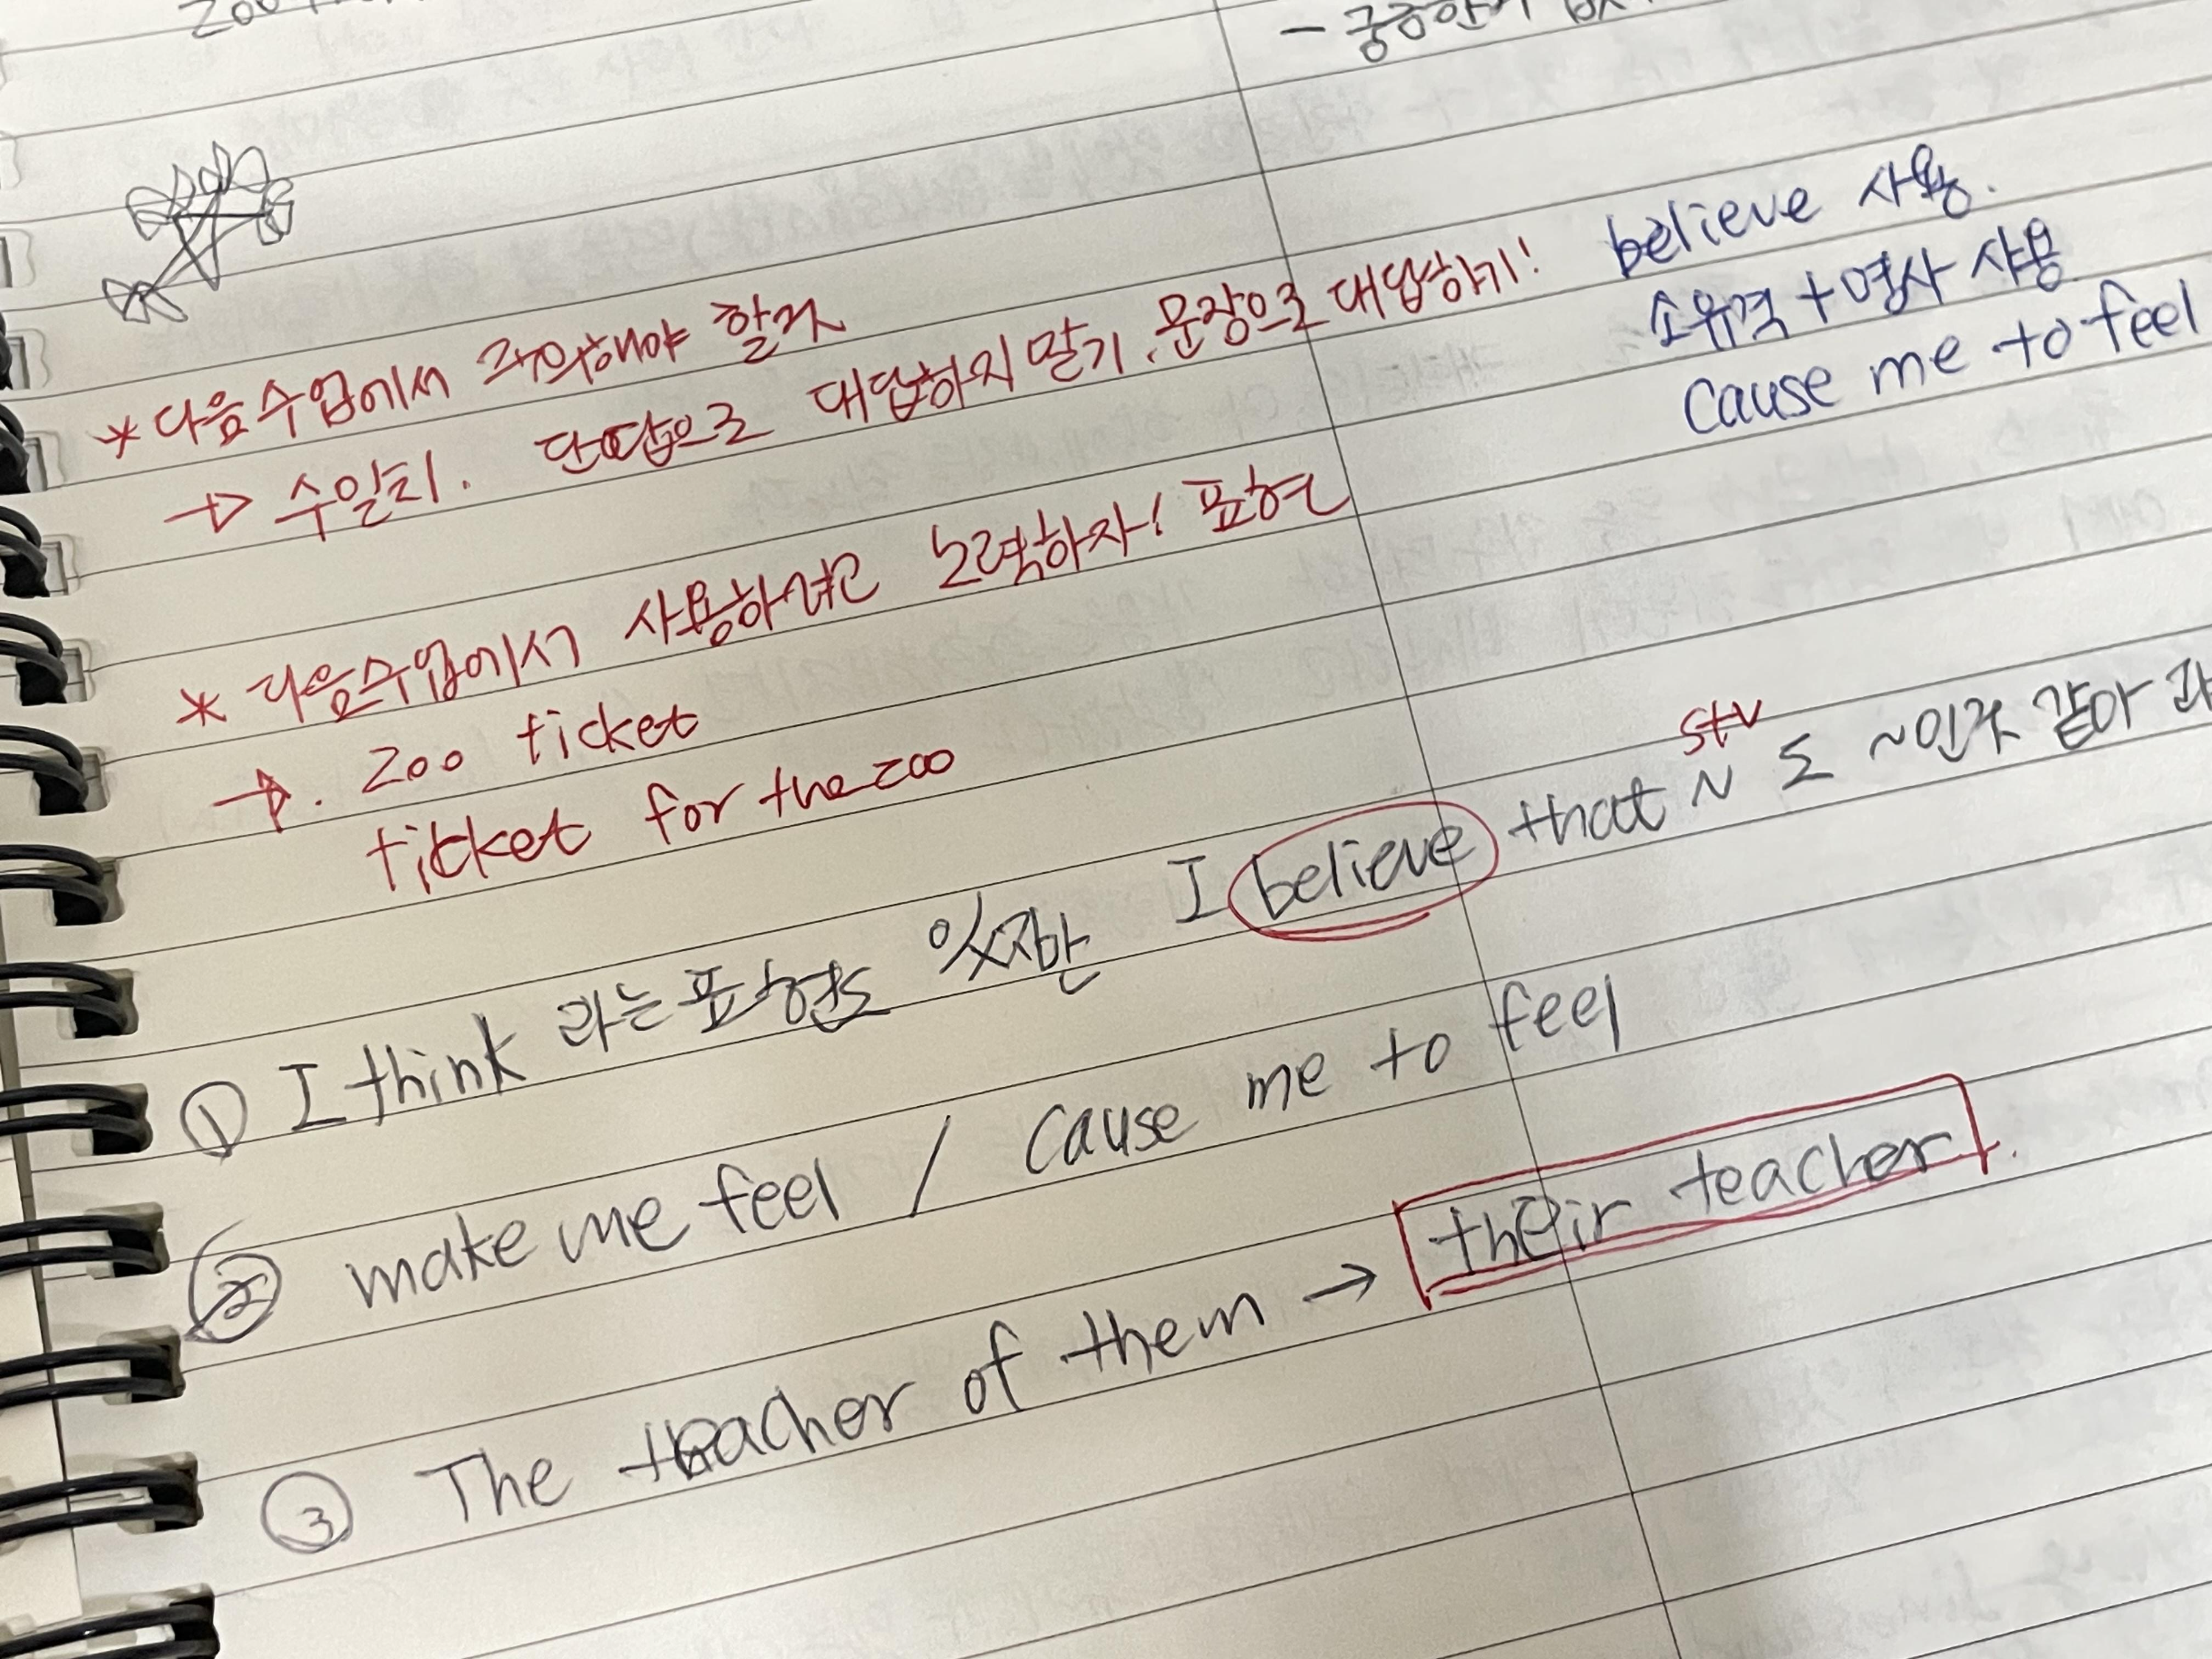 * 다음수업에서 주의해야 할거
→ 수일치. 단답으로 대답하지말기. 문장으로 대답하기!
believe 사용.
소유격 + 명사 사용
cause me to feel
* 다음수업에서 사용하려고 노력하자! 표현
→. zoo ticket
ticket for the zoo
① I think 라는 표현도 있지만 I believe that ~ 도 ~인것 같아 라
s+v
② make me feel / cause me to feel
③ The teacher of them → their teacher.